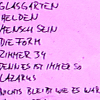 GLASGARTEN
HELDEN
MENSCH SEIN
DIE FORM
ZIMMER 34
DENN ES IST IMMER SO
LAZARUS
NICHTS BLEIBT WIE ES WAR